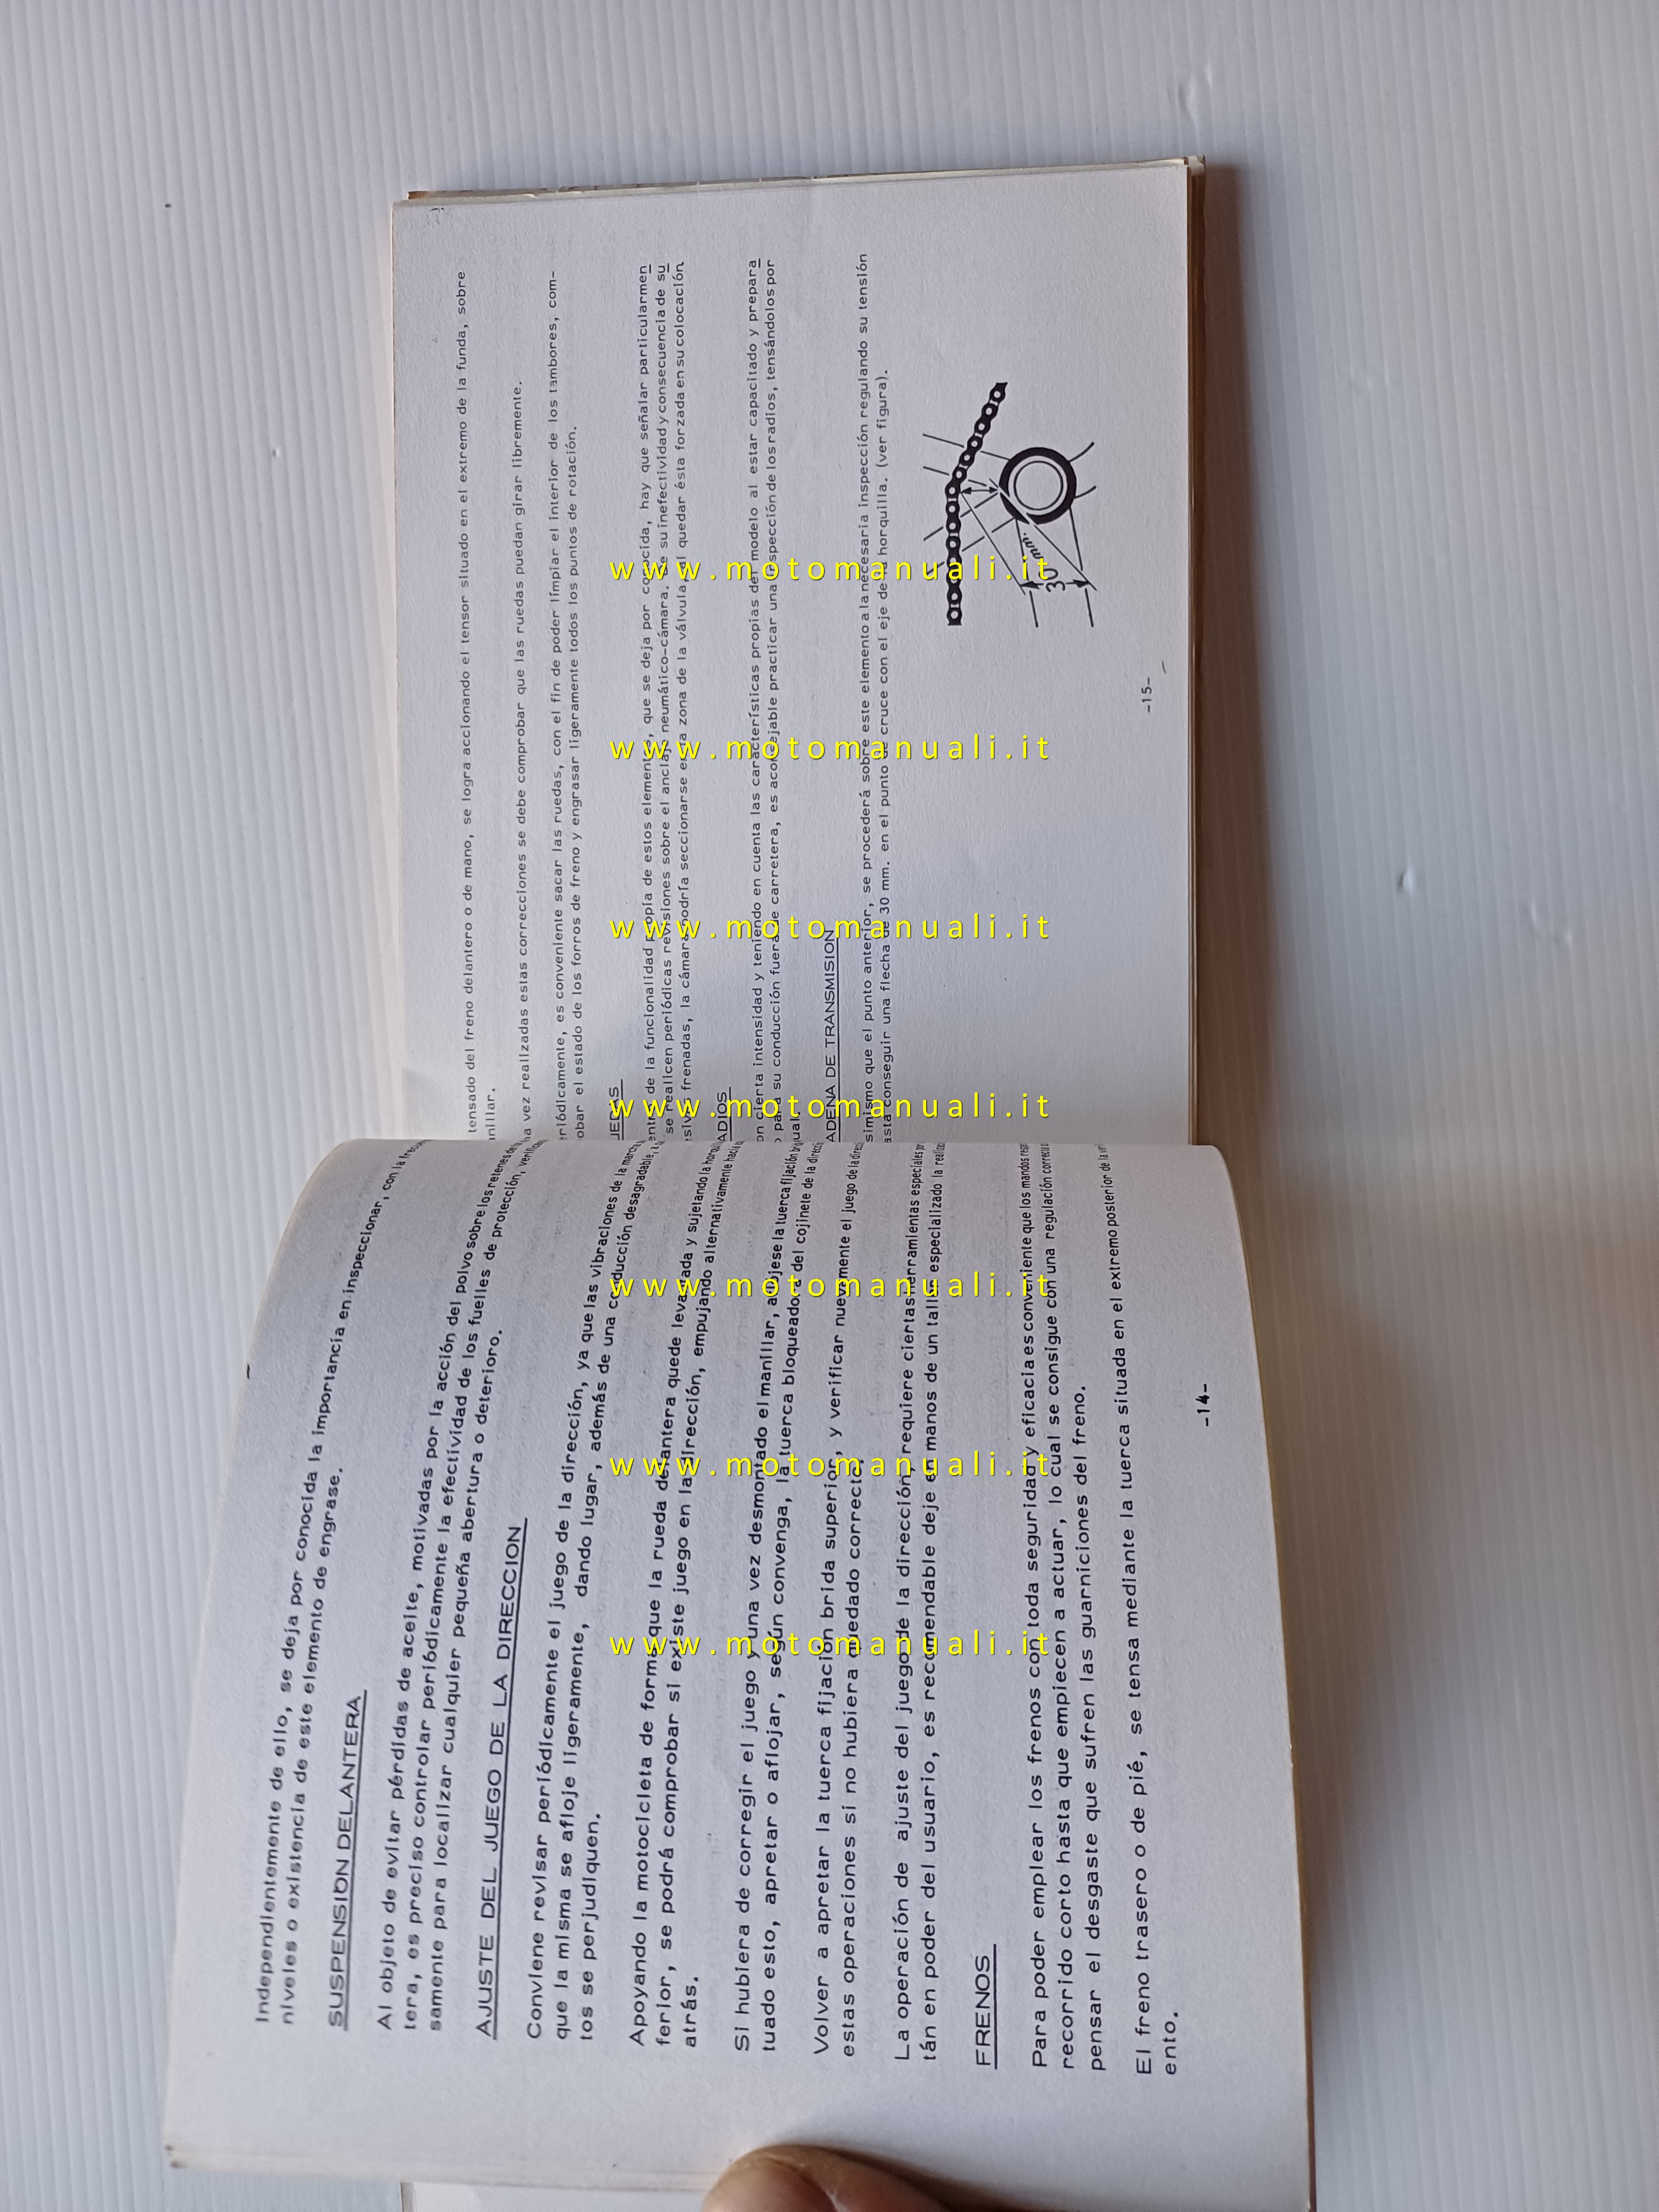 Independientemente de ello, se deja por conocida la importancia en inspeccionar, con la
niveles o existencia de este elemento de engrase.
SUSPENSION DELANTERA
Al objeto de evitar pérdidas de aceite, motivadas por la acción del polvo sobre los retenes
tera, es preciso controlar periódicamente la efectividad de los fuelles de protección,
samente para localizar cualquier pequeña abertura o deterioro.
AJUSTE DEL JUEGO DE LA DIRECCION
Conviene revisar periódicamente el juego de la dirección, ya que las vibraciones de la
que la misma se afloje ligeramente, dando lugar, además de una conducción desagradable,
tos se perjudiquen.
Apoyando la motocicleta de forma que la rueda delantera quede levantada y sujetando la
ferior, se podrá comprobar si existe juego en la dirección, empujando alternativamente
atrás.
Si hubiera de corregir el juego y una vez desmontado el manillar, aflojese la tuerca fijación
tuado esto, apretar o aflojar, según convenga, la tuerca bloqueadora del cojinete de la
Volver a apretar la tuerca fijación brida superior, y verificar nuevamente el juego de la
estas operaciones si no hubiera quedado correcto.
La operación de ajuste del juego de la dirección, requiere ciertas herramientas especiales
tán en poder del usuario, es recomendable deje en manos de un taller especializado la
FRENOS
Para poder emplear los frenos con toda seguridad y eficacia es conveniente que los mandos
recorrido corto hasta que empiecen a actuar, lo cual se consigue con una regulación
pensar el desgaste que sufren las guarniciones del freno.
El freno trasero o de pié, se tensa mediante la tuerca situada en el extremo posterior de la
ento.
-14-
tensado del freno delantero o de mano, se logra accionando el tensor situado en el extremo de la funda, sobre
anillar.
na vez realizadas estas correcciones se debe comprobar que las ruedas puedan girar libremente.
eriódicamente, es conveniente sacar las ruedas, con el fin de poder limpiar el interior de los tambores, com-
obar el estado de los forros de freno y engrasar ligeramente todos los puntos de rotación.
UEDAS
entro de la funcionalidad propia de estos elementos, que se deja por conocida, hay que señalar particularmen
se realicen periódicas revisiones sobre el anclaje neumático-cámara. De su inefectividad y consecuencia de su
sivas frenadas, la cámara podría seccionarse en la zona de la válvula al quedar ésta forzada en su colocación.
ADIOS
on cierta intensidad y teniendo en cuenta las características propias del modelo al estar capacitado y prepara
o para su conducción fuera de carretera, es aconsejable practicar una inspección de los radios, tensándolos por
ual.
ADENA DE TRANSMISION
simismo que el punto anterior, se procederá sobre este elemento a la necesaria inspección regulando su tensión
asta conseguir una flecha de 30 mm. en el punto de cruce con el eje de la horquilla. (ver figura).
30 mm.
-15-
www.motomanuali.it
www.motomanuali.it
www.motomanuali.it
www.motomanuali.it
www.motomanuali.it
www.motomanuali.it
www.motomanuali.it